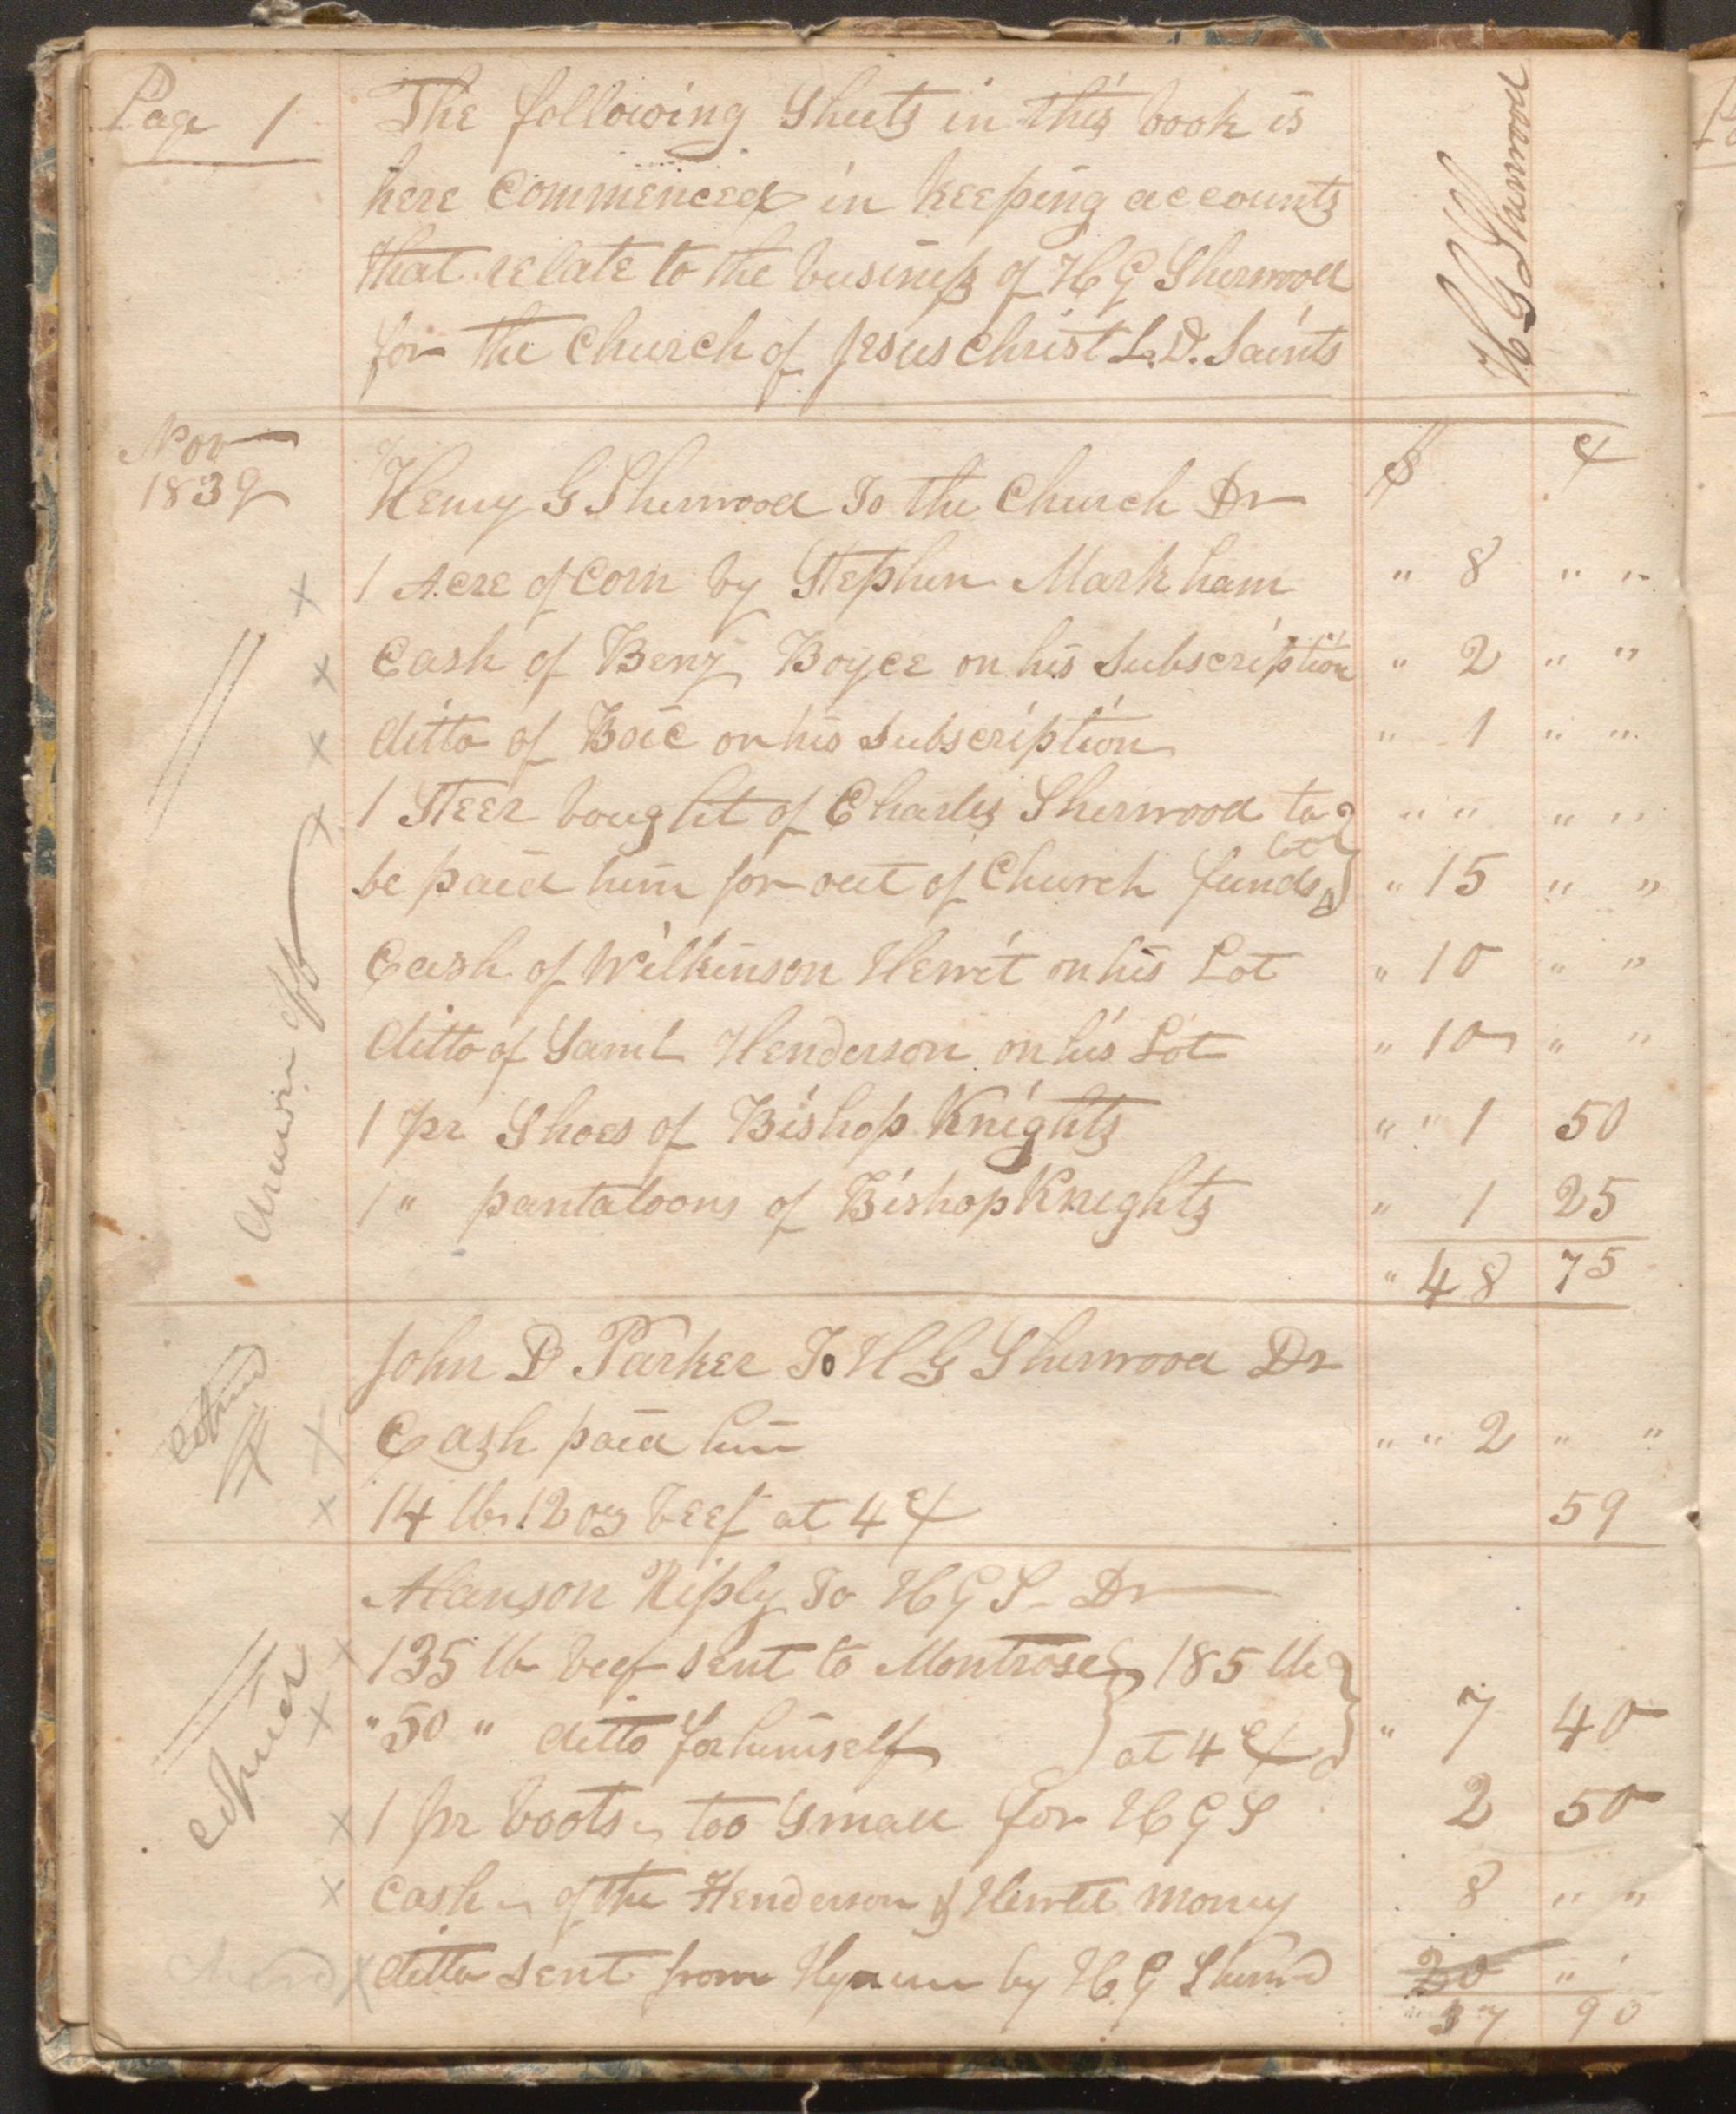 Page 1
The following Sheets in this book is
here Commenced in keeping accounts
that relate to the business of H G Sherwood
for the Church of Jesus Christ L. D. Saints
H G Sherwood
Nov
1839
$ ¢
Henry G Sherwood To the Church Dr
1 Acre of Corn by Stephen Markham " 8 " "
Cash of Benj Boyce on his Subscription " 2 " "
ditto of Boic on his Subscription " 1 " "
1 Steer bought of Charles Sherwood to " " " "
lot
be paid him for out of Church funds " 15 " "
Cash of Wilkinson Hewit on his Lot " 10 " "
ditto of Saml Henderson on his Lot " 10 " "
1 pr Shoes of Bishop Knights " " 1 50
1 " pantaloons of Bishop Knights " 1 25
" 48 75
drawn off
John D Parker To H G Sherwood Dr
Cash paid him " " 2 " "
14 lb 12 oz beef at 4 ¢ 59
Alanson Riply To H G S - Dr
135 lb beef sent to Montrose 185 lb
" 50 " ditto for himself at 4 ¢ " 7 40
1 pr boots too Small for H G S 2 50
Cash of the Henderson & Hewitt money 8 " "
ditto sent from by H. G Sherwd 20 "
37 90